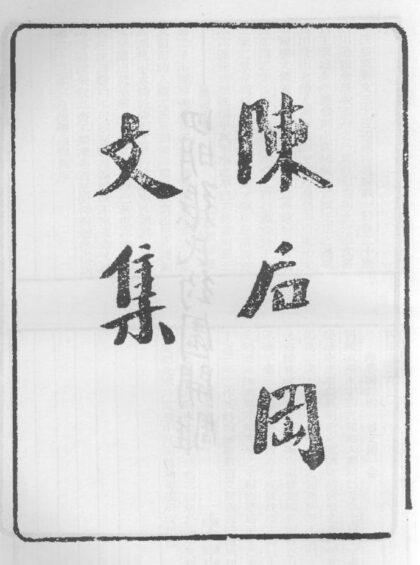 陳后岡
文集